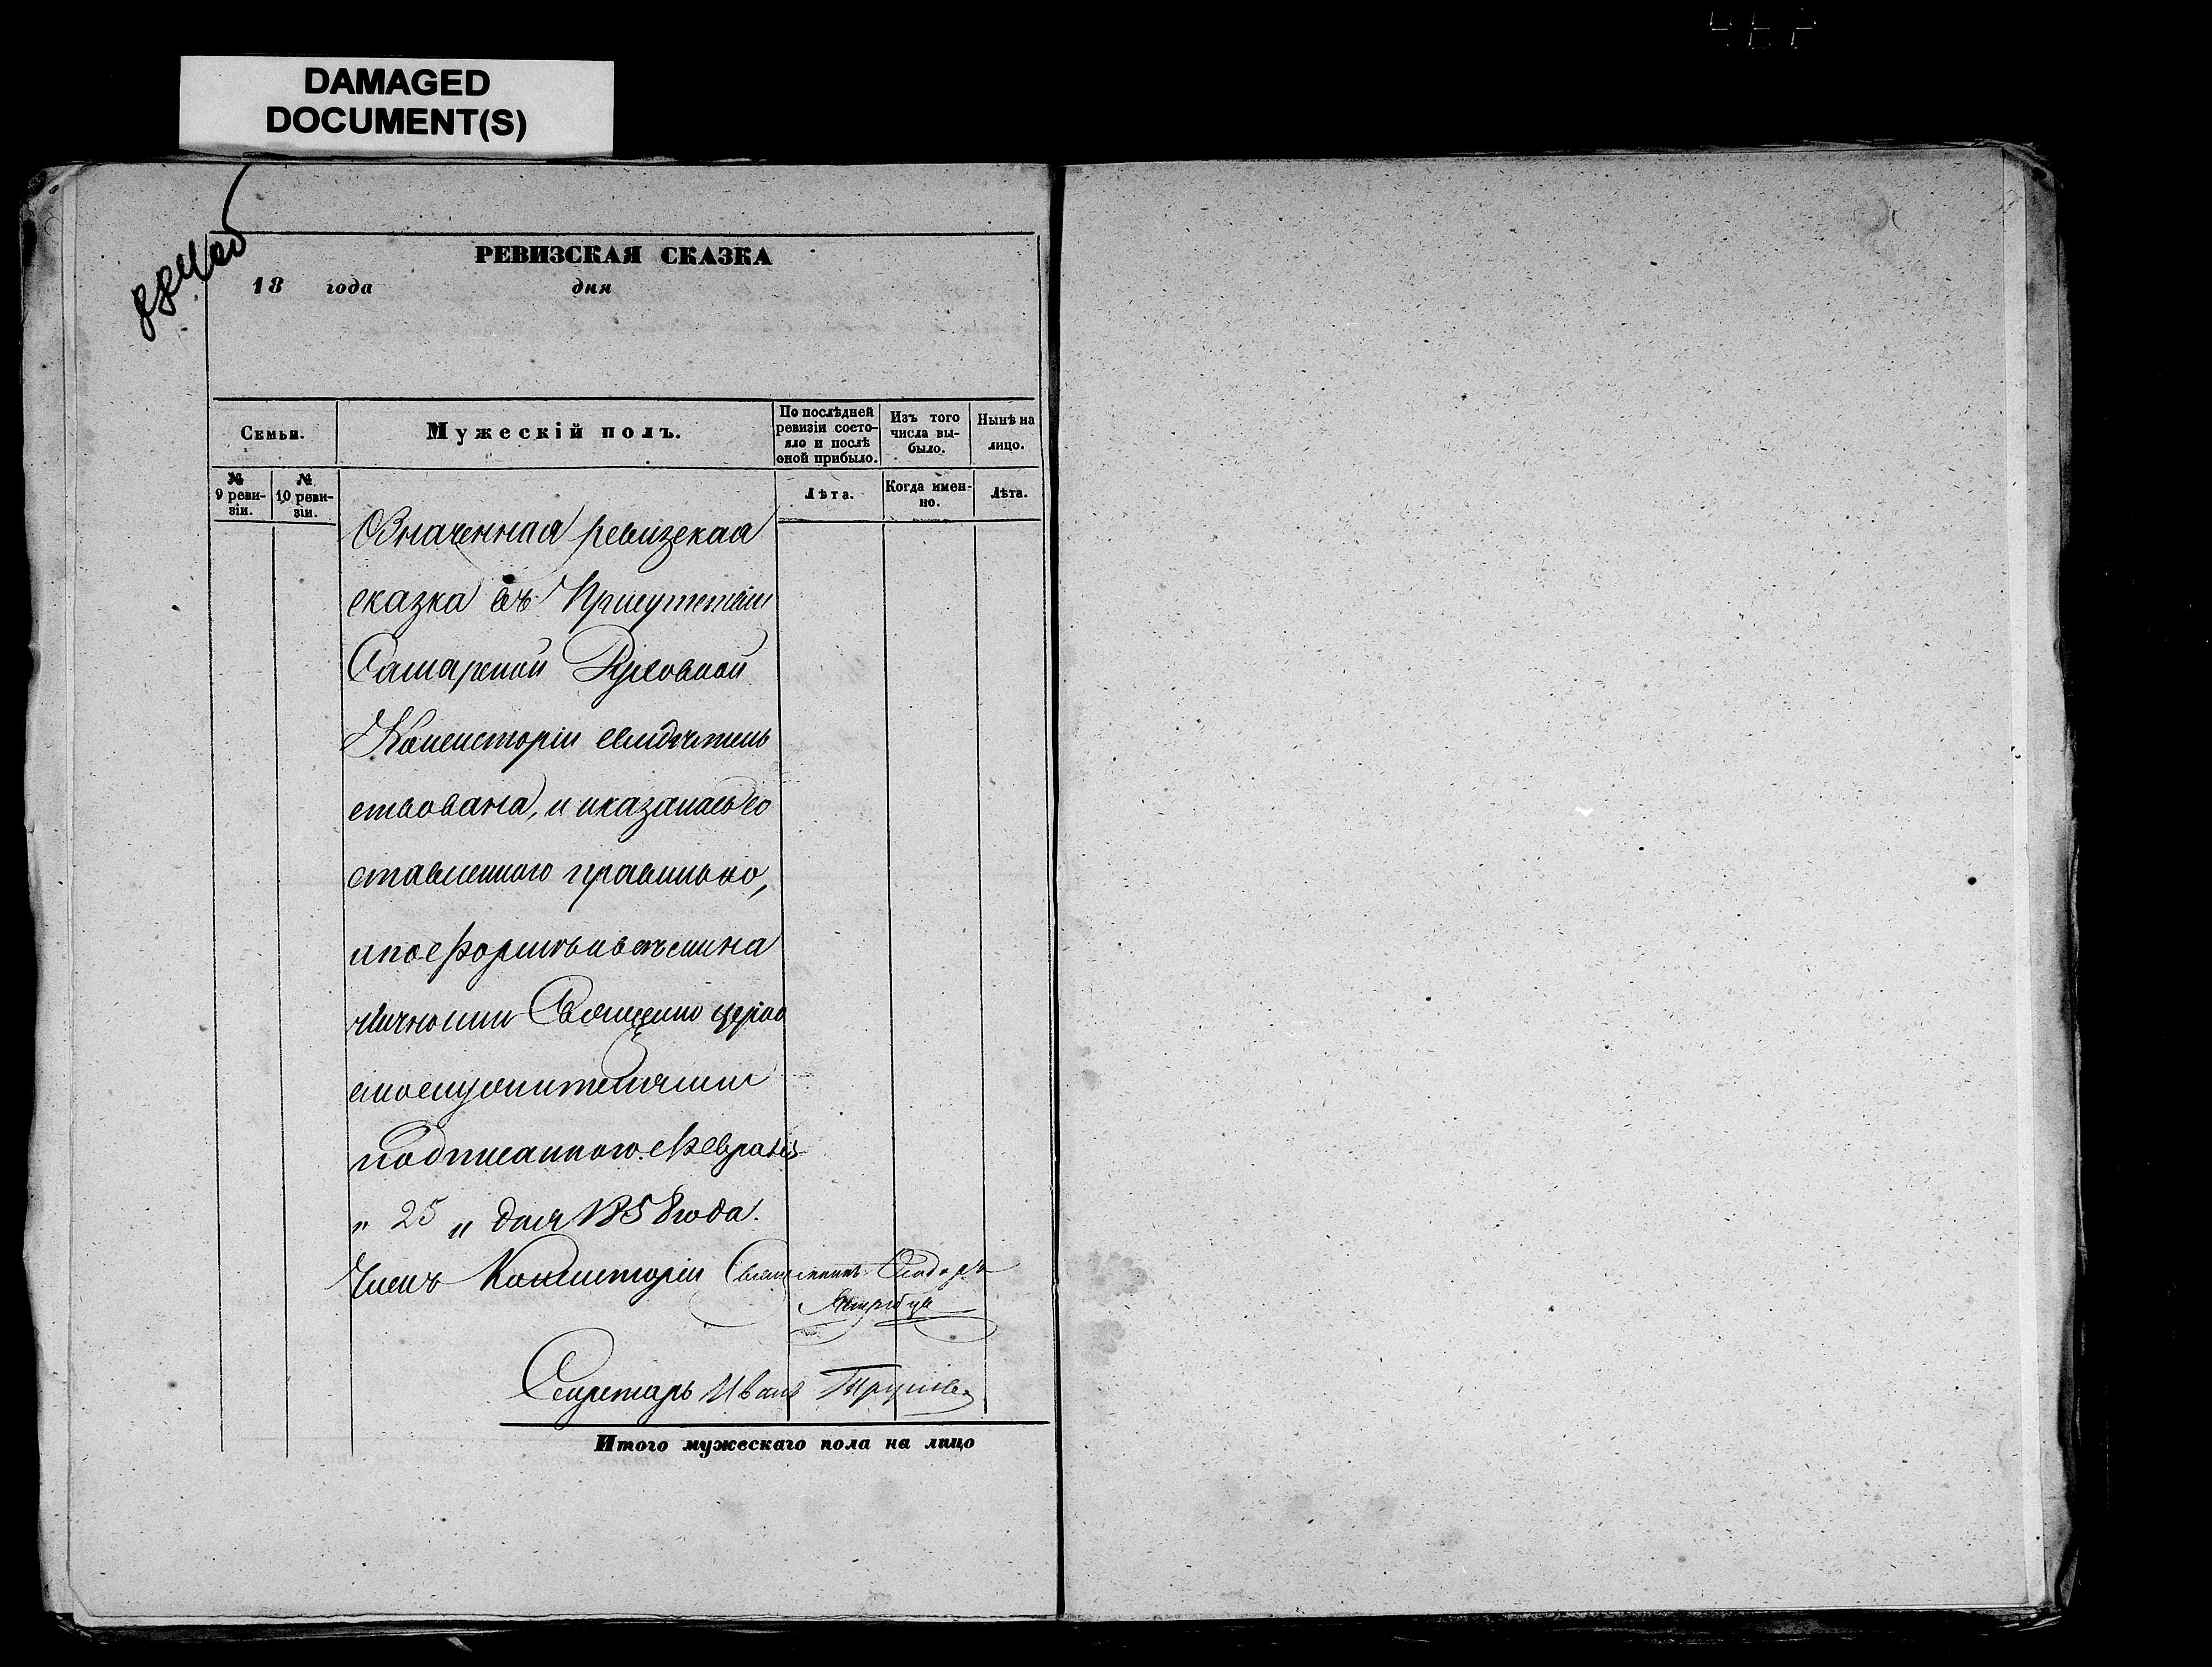 DAMAGED
DOCUMENT(S)
РЕВИЗСКАЯ СКАЗКА
18 года дня
Семьи.
Мужескій полъ.
По послѣдней ревизіи состо-
яло и послѣ
оной прибыло.
Изъ того
числа вы-
было.
Нынѣ на
лицо.
№
9 реви-
зіи.
№
10 реви-
зіи.
Лѣта.
Когда имен-
но.
Лѣта.
Означенная ревизская
сказка въ Присутствіи
Самарской Духовной
Консисторіи свидѣтель
ствована, и оказалась со
ставленною правильно,
по формѣ и всѣми на
личными Священно церко
вно служителями
подписанною. Февраля
„ 25 „ дня 1858 года.
Членъ Консисторіи Священникъ
Секретарь Иванъ
Итого мужескаго пола на лицо